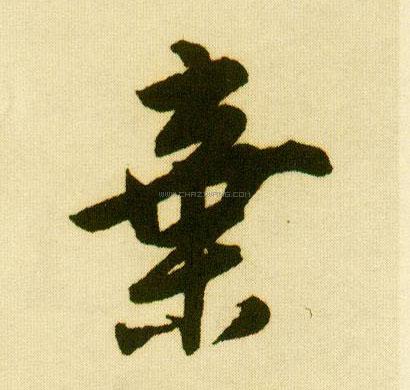 棄
WWW.CHAZIWANG.COM